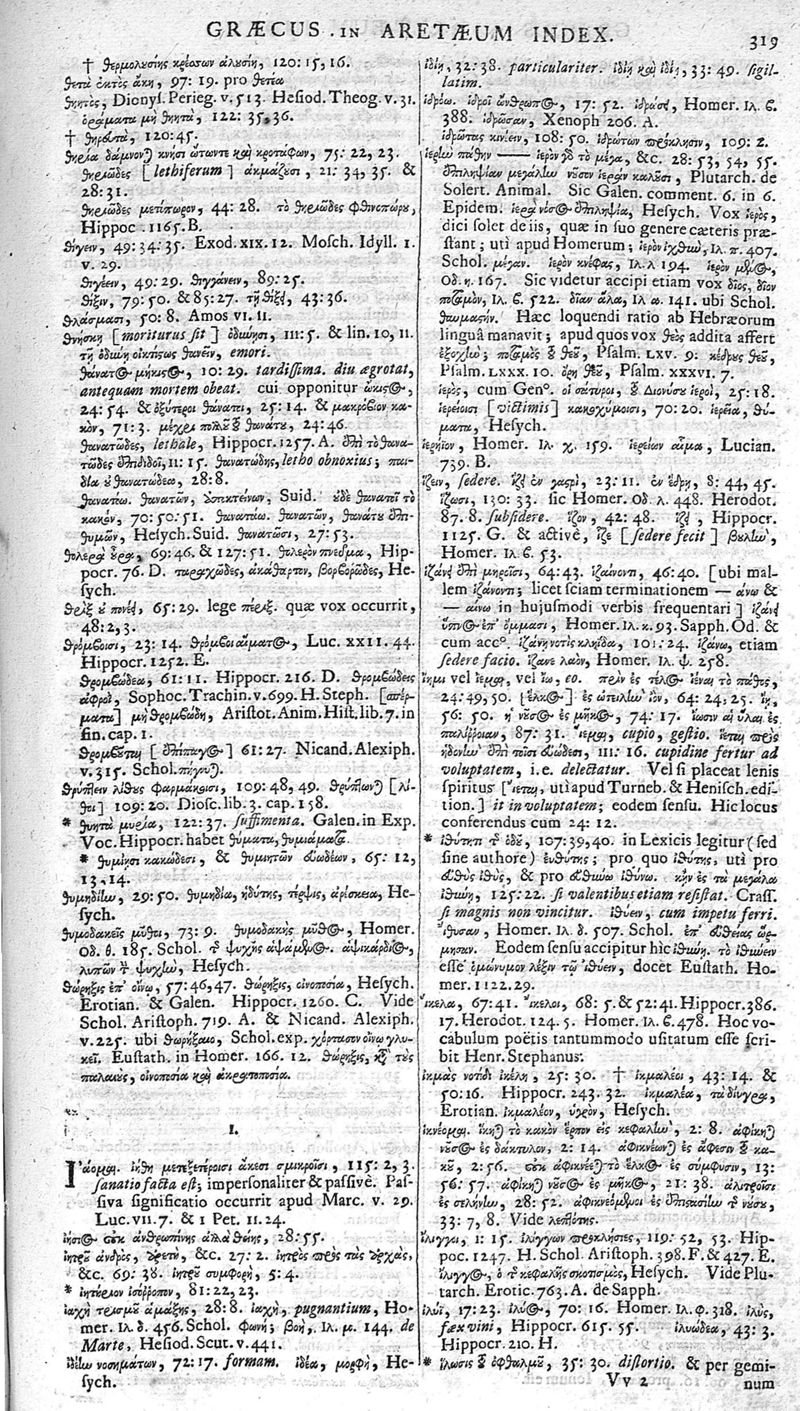 GRÆCUS IN ARETÆUM INDEX.
319
† θερμολουσίης κρέασων ἀλυσίη, 120: 15, 16.
θετὰ ἐκτὸς ἄκη, 97: 19. pro θετέα
θηητὸς, Dionys. Perieg. v. 513. Hesiod. Theog. v. 31.
ὁράματα μὴ θηητὰ, 122: 35, 36.
120: 45.
75: 22, 23.
θηριῶδες [lethiferum] ἀκμάζουσι, 21: 34, 35. &
28: 31.
θηριῶδες μετόπωρον, 44: 28. τὸ θηριῶδες φθινοπώρου,
Hippoc. 1165. B.
θίγειν, 49: 34: 35. Exod. XIX. 12. Mosch. Idyll. 1.
v. 29.
θιγέειν, 49: 29. θιγγάνειν, 89: 25.
θίξιν, 79: 50. & 85: 27. τῇ θίξει, 43: 36.
θλάσμασι, 50: 8. Amos VI. 11.
θνήσκῃ [moriturus sit] ὀδύνῃσι, 111: 5. & lin. 10, 11.
τῇ ὀδύνῃ οἰκτίστως θανεῖν, emori.
θάνατος μήκιστος, 10: 29. tardissima. diu ægrotat,
antequam mortem obeat. cui opponitur ὤκιστος,
24: 54. & ὀξύτεροι θάνατοι, 25: 14. & μακρόβιον κα-
κὸν, 71: 3. μέχρι πολλοῦ τοῦ θανάτου, 24: 46.
θανατῶδες, lethale, Hippocr. 1257. A. ἐπὶ τὸ θανα-
τῶδες ἐπιδιδοῖ, 11: 15. θανατώδης, letho obnoxius; παι-
δία οὐ θανατώδεα, 28: 8.
θανατόω. θανατῶν, ἀποκτείνων, Suid. οὐδὲ θανατοῖ τὸ
κακὸν, 70: 50: 51. θανατάω. θανατῶν, θανάτου ἐπι-
θυμῶν, Hesych. Suid. θανατῶσι, 27: 53.
θολερὰ οὖρα, 69: 46. & 127: 51. θολερὸν πνεῦμα, Hip-
pocr. 76. D. ταραχῶδες, ἀκάθαρτον, βορβορῶδες, He-
sych.
65: 29. lege πέριξ. quæ vox occurrit,
48: 2, 3.
θρόμβοισι, 23: 14. θρόμβοι αἵματος, Luc. XXII. 44.
Hippocr. 1252. E.
θρομβώδεα, 61: 11. Hippocr. 216. D. θρομβώδεις
ἀφροὶ, Sophoc. Trachin. v. 699. H. Steph. [σπέρ-
ματα] μὴ θρομβώδη, Aristot. Anim. Hist. lib. 7. in
fin. cap. 1.
θρομβοῦται [ἐπίπαγος] 61: 27. Nicand. Alexiph.
v. 315. Schol. πήγνυται.
θρύπτειν λίθους φαρμάκοισι, 109: 48, 49. θρύπτων [λί-
θοι] 109: 20. Diosc. lib. 3. cap. 158.
* θυητὰ μυρία, 122: 37. suffimenta. Galen. in Exp.
Voc. Hippocr. habet θύματα, θυμιάματα.
* θυμίησι κακώδεσι, & θυμιητῶν εὐωδέων, 65: 12,
13, 14.
θυμηδίη, 29: 50. θυμηδία, ἡδύτης, τέρψις, ἀρίσκεια, He-
sych.
θυμοδακεῖς μῦθοι, 73: 9. θυμοδακὴς μῦθος, Homer.
Οδ. θ. 185. Schol. τῆς ψυχῆς ἁψάμενος. ἁψικάρδιος,
λυπῶν τὴν ψυχὴν, Hesych.
θώρηξις ἐπ᾽ οἴνῳ, 57: 46, 47. θώρηξις, οἰνοποσία, Hesych.
Erotian. & Galen. Hippocr. 1260. C. Vide
Schol. Aristoph. 719. A. & Nicand. Alexiph.
v. 225. ubi θωρήξαιο, Schol. exp. χόρτασον οἴνῳ γλυ-
κεῖ. Eustath. in Homer. 166. 12. θώρηξις, κατὰ τοὺς
παλαιοὺς, οἰνοποσία καὶ ἀκρατοποσία.
I.
Ἰάομαι. ἰήθη μετεξετέροισι ἄκεσι σμικροῖσι, 115: 2, 3.
sanatio facta est; impersonaliter & passivè. Pas-
siva significatio occurrit apud Marc. v. 29.
Luc. VII. 7. & 1 Pet. 11. 24.
ἰητὸς οὐκ ἀνθρωπίνης ἀλλὰ θείης, 28: 55.
ἰητροῦ ἀνδρὸς, ἀρετὴ, &c. 27: 2. ἰητρὸς πρὸς τὰς ἀρχὰς,
&c. 69: 38. ἰητροῦ συμφορὴ, 5: 4.
* ἰητήριον ἰσόῤῥοπον, 81: 22, 23.
ἰαχὴ τρισμὸς ἁμάξης, 28: 8. ἰαχὴ, pugnantium, Ho-
mer. Ιλ. δ. 456. Schol. φωνή; βοή. Ιλ. μ. 144. de
Marte, Hesiod. Scut. v. 441.
ἰδέην νοσημάτων, 72: 17. formam. ἰδέα, μορφὴ, He-
sych.
ἰδίῃ, 32: 38. particulariter. ἰδίῃ καὶ ἰδίῃ, 33: 49. sigil-
latim.
ἱδρόω. ἱδροῖ ὥνθρωπος, 17: 52. ἱδρώσει, Homer. Ιλ. β.
388. ἱδρῶσαν, Xenoph 206. A.
ἱδρῶτας κινέειν, 108: 50. ἱδρώτων πρόκλησιν, 109: 2.
ἱερὴν πάθην —— ἱερὸν γὰρ τὸ μέγα, &c. 28: 53, 54, 55.
ἐπιληψίαν μεγάλην νοῦσον ἱερὰν καλοῦσι, Plutarch. de
Solert. Animal. Sic Galen. comment. 6. in 6.
Epidem. ἱερὰ νόσος ἐπιληψία, Hesych. Vox ἱερὸς,
dici solet de iis, quæ in suo genere cæteris præ-
stant; utì apud Homerum; ἱερὸν ἰχθὺν, Ιλ. π. 407.
Schol. μέγαν. ἱερὸν κνέφας, Ιλ. λ 194. ἱερὸν μένος,
Οδ. η. 167. Sic videtur accipi etiam vox δῖος, δῖον
ποταμὸν, Ιλ. β. 522. δῖαν ἅλα, Ιλ α. 141. ubi Schol.
θαυμαστήν. Hæc loquendi ratio ab Hebræorum
linguâ manavit; apud quos vox θεὸς addita affert
ἐξοχὴν; ποταμὸς τοῦ θεοῦ, Psalm. LXV. 9: κέδρους θεοῦ,
Psalm. LXXX. 10. ὄρη θεοῦ, Psalm. XXXVI. 7.
ἱερὸς, cum Genº. οἱ σάτυροι, τοῦ Διονύσου ἱεροὶ, 25: 18.
ἱερείοισι [victimis] κακοχύμοισι, 70: 20. ἱερεῖα, θύ-
ματα, Hesych.
ἱερήϊον, Homer. Ιλ. χ. 159. ἱερείων αἷμα, Lucian.
739. B.
ἵζειν, sedere. ἵζει ἐν γαστρὶ, 23: 11. ἐν ἕδρῃ, 8: 44, 45.
ἵζωσι, 130: 33. sic Homer. Οδ. λ. 448. Herodot.
87. 8. subsidere. ἵζον, 42: 48. ἵζει, Hippocr.
1125. G. & activè, ἵζε [sedere fecit] βουλὴν,
Homer. Ιλ. β. 53.
ἱζάνει ἐπὶ μηροῖσι, 64: 43. ἱζαίνοντι, 46: 40. [ubi mal-
lem ἱζάνοντι; licet sciam terminationem — άνω &
— αίνω in hujusmodi verbis frequentari] ἱζάνει
ὕπνος ἐπ᾽ ὄμμασι, Homer. Ιλ. κ. 93. Sapph. Od. &
cum accº. 101: 24. ἱζάνω, etiam
sedere facio. ἵζανε λαὸν, Homer. Ιλ. ψ. 258.
ἵημι vel ἵεμαι, vel ἴω, eo. πρὶν ἐς τέλος ἰέναι τὸ πάθος,
24: 49, 50. [ἕλκος] ἐς ὠτειλὴν ἴον, 64: 24, 25. ἴῃ,
56: 50. ἡ νοῦσος ἐς μῆκος, 74: 17. ἴωσιν αἱ ὗλαι ἐς
παλίῤῥοιαν, 87: 31. ἵεμαι, cupio, gestio. ἵεται πρὸς
ἡδονὴν ἐπὶ τοῖσι εὐώδεσι, 111: 16. cupidine fertur ad
voluptatem, i. e. delectatur. Vel si placeat lenis
spiritus [ἴεται, utì apud Turneb. & Henisch. edi-
tion.] it in voluptatem; eodem sensu. Hic locus
conferendus cum 24: 12.
* ἰθύτητι τῆς ὁδοῦ, 107: 39, 40. in Lexicis legitur (sed
sine authore) εὐθύτης; pro quo ἰθύτης, utì pro
εὐθὺς ἰθὺς, & pro εὐθύνω ἰθύνω. κἢν ἐς τὰ μεγάλα
ἰθύνῃ, 125: 22. si valentibus etiam resistat. Crass.
si magnis non vincitur. ἰθύειν, cum impetu ferri.
ἴθυσαν, Homer. Ιλ. δ. 507. Schol. ἐπ᾽ εὐθείας ὥρ-
μησαν. Eodem sensu accipitur hìc ἰθύνῃ. τὸ ἰθύνειν
esse ὁμώνυμον λέξιν τῷ ἰθύειν, docet Eustath. Ho-
mer. 1122. 29.
ἴκελα, 67: 41. ἴκελοι, 68: 5. & 52: 41. Hippocr. 386.
17. Herodot. 124. 5. Homer. Ιλ. β. 478. Hoc vo-
cabulum poëtis tantummodo usitatum esse scri-
bit Henr. Stephanus.
ἰκμὰς νοτίδι ἰκέλη, 25: 30. † ἰκμαλέοι, 43: 14. &
50: 16. Hippocr. 243. 32. ἰκμαλέα, τὰ δίυγρα,
Erotian. ἰκμαλέον, ὑγρὸν, Hesych.
ἱκνέομαι. ἵκηται τὸ κακὸν ἕρπον εἰς κεφαλὴν, 2: 8. ἀφίκηται
νοῦσος ἐς δάκτυλον, 2: 14. ἀφικνέωνται ἐς ἄφεσιν τοῦ κα-
κοῦ, 2: 56. οὐκ ἀφικνέεται τὸ ἕλκος ἐς σύμφυσιν, 13:
56: 57. ἀφίκηται νοῦσος ἐς μῆκος, 21: 38. ἀλιτροῖσι
ἐς σελήνην, 28: 52. ἀφικνεόμενοι ἐς ἐπίτασιν τῆς νούσου,
33: 7, 8. Vide
ἴλιγγοι, 1: 15. ἰλίγγων προκλήσιες, 119: 52, 53. Hip-
poc. 1247. H. Schol. Aristoph. 398. F. & 427. E.
ἴλιγγος, ὁ τῆς κεφαλῆς σκοτισμὸς, Hesych. Vide Plu-
tarch. Erotic. 763. A. de Sapph.
ἰλύϊ, 17: 23. ἰλύος, 70: 16. Homer. Ιλ. φ. 318. ἰλὺς,
fæx vini, Hippocr. 615. 55. ἰλυώδεα, 43: 3.
Hippocr. 210. H.
* ἴλωσις τοῦ ὀφθαλμοῦ, 35: 30. distortio. & per gemi-
V v 2
num